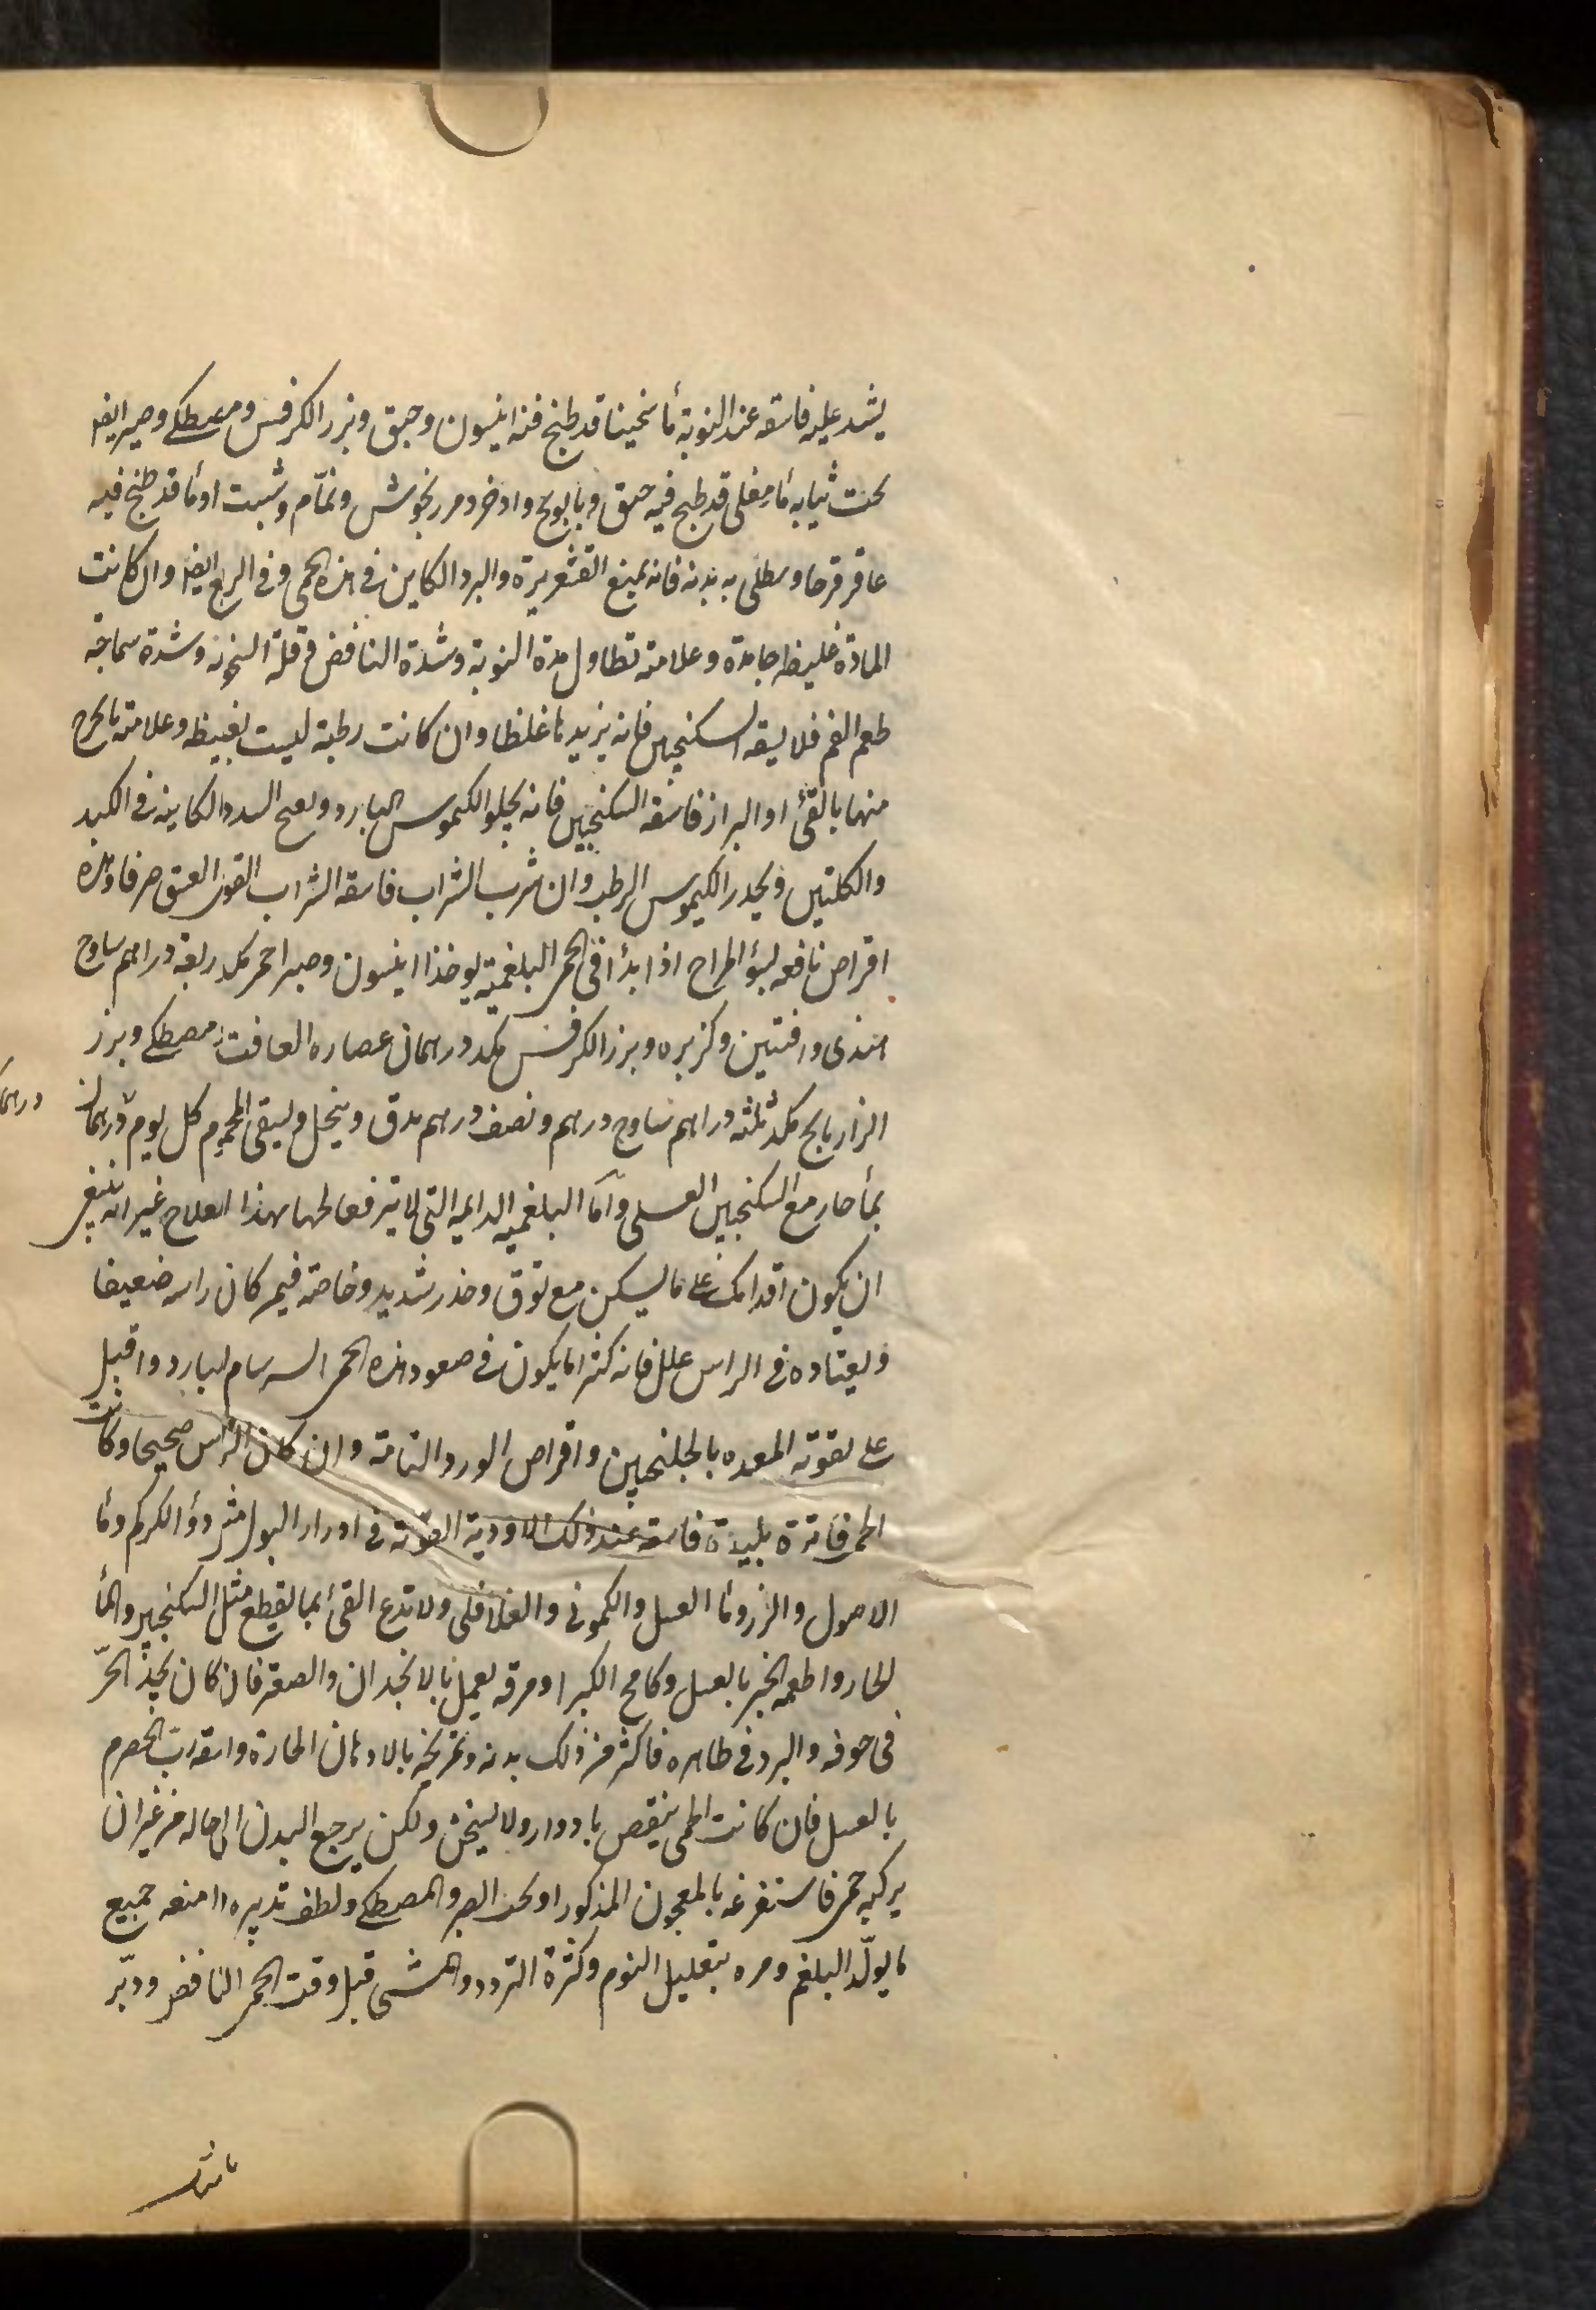 يشتد عليه فاسقه عند النوبة مأ سخينا قد طبخ فيه انيسون وحبق وبزر الكرفس ومصطكى وصير ايضا
تحت ثيابه مأ مغلى قد طبخ فيه حبق وبابونج واذخر ومرزنجوش ونمّام وشبت او مأ قد طبخ فيه
عاقر قرحا ويطلى به بدنه فانه يمنع القشعريرة والبرد الكاين فى هذه الحمى وفى الربع ايضا وان كانت
المادة غليظه جامدة وعلامته تطاول مدة النوبة وشدة النافض وقلة السخونه وشدة سماجة
طعم الفم فلا يسقه السكنجبين فانه يزيدها غلظا وان كانت رطبة ليست بغليظه وعلامته ما يخرج
منها بالقئ او البراز فاسقه السكنجبين فانه يجلو الكيموس البارد ويفتح السدد الكاينه فى الكبد
والكلتين ويحدر الكيموس الرطب وان شرب الشراب فاسقه الشراب القوى العتيق صرفا وهذه
اقراص نافعه لسؤ المزاج اذا بدأ فى الحمى البلغمية يوخذ انيسون وصبر احمر مكد اربعة دراهم ساذج
هندى وافتتين وكزبره وبزر الكرفس مكد درهمان عصاره الغافت مصطكى وبزر
الرازيانج مكد ثلثه دراهم ساذج درهم ونصف درهم يدق وينخل ويسقى المحموم كل يوم درهمان
بمأ حار مع السكنجبين العسلى وامّا البلغميه الدايمه التى لا تترفعالجها بهذا العلاج غير انه ينبغى
ان يكون اقدامك على ما يسكن مع توق وحذر شديد وخاصة فيمن كان راسه ضعيفا
ويعتاده فى الراس علل فانه كثيرا ما يكون فى صعود هذه الحمى السرسام البارد واقبل
على تقوية المعده بالجلنجبين واقراص الورد التامة وان كان الرأس صحيحا وكانت
الحمى فاترة بليدة فاسقه عند ذلك الادوية القوية فى ادرار البول مثل دوأ الكركم ومأ
الاصول والبزور ومأ العسل والكمونى والفلافلى ولا تدع القئ بما يقطع مثل السكنجبين والمأ
الحار واطعمه الخبز بالعسل وكامخ الكبر او مرقه يعمل بالانجدان والصعتر فان كان يجد الحرّ
فى جوفه والبرد فى ظاهره فاكثر من ذلك بدنه وتمريخه بالادهان الحارة واسقه ربّ الحصرم
بالعسل فان كانت الحمى ينقص بادوار ولا يسخن ولكن يرجع البدن الى حاله من غير ان
يركبه حمى فاستفرغه بالمعجون المذكور او بحب الصبر والمصطكى ولطف تدبيره وامنعه جميع
ما يولّد البلغم ومره بتقليل النوم وكثرة التردد والمشى قبل وقت الحمى النافض ودبّر